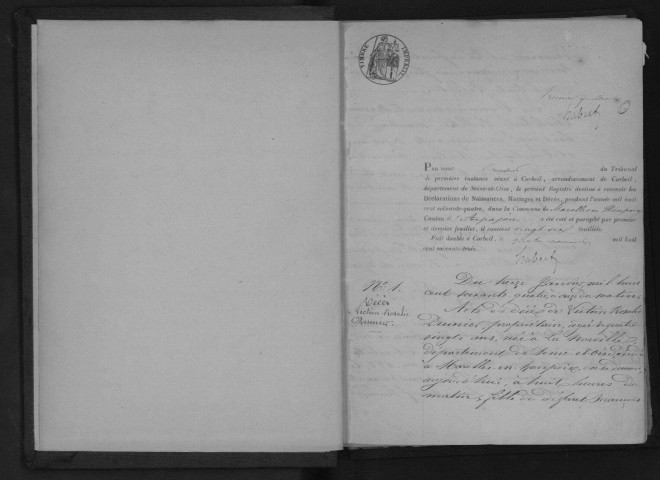 TIMBRE IMPERIAL
Premier
Hubert
Par nous du Tribunal
de première instance séant à Corbeil, arrondissement de Corbeil,
département de Seine-et-Oise, le présent Registre destiné à recevoir les
Déclarations de Naissances, Mariages et Décès, pendant l'année mil huit
cent soixante-quatre, dans la Commune de Marolles en Hurepoix
Canton d'Arpajon a été coté et paraphé par premier
et dernier feuillet, il contient vingt six feuillets.
Fait double à Corbeil, le mil huit
cent soixante-trois.
Hubert
Du treize Janvier mil huit
cent soixante quatre à du matin
N° 1.
Décès
Acte de décès de
propriétaire, âgée de quatre
vingts ans, née à La Norville
département de Seine et Oise
à Marolles en Hurepoix,
aujourd'hui, à huit heures du
matin, fille de défunt François